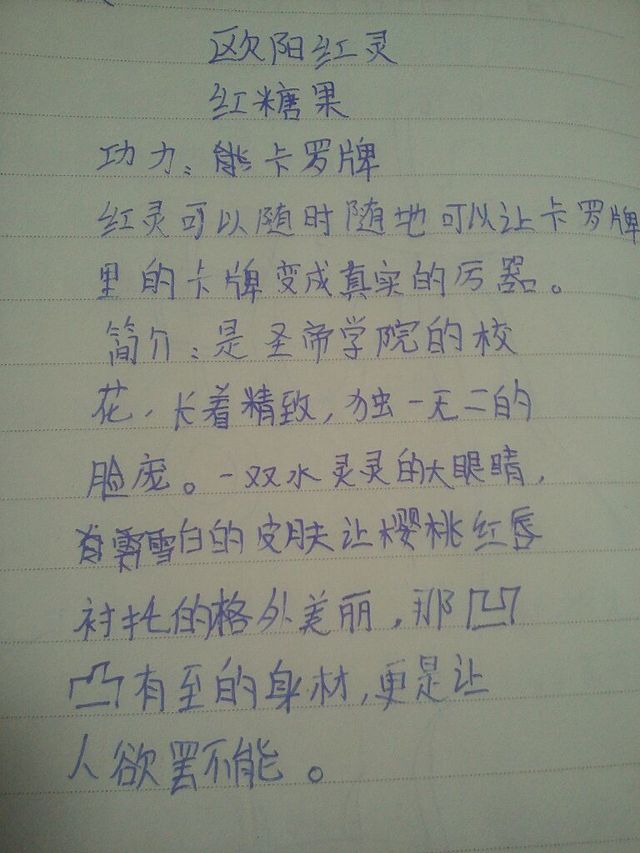 欧阳红灵
红糖果
功力：能卡罗牌
红灵可以随时随地可以让卡罗牌
里的卡牌变成真实的厉器。
简介：是圣帝学院的校
花，长着精致，独一无二的
脸庞。一双水灵灵的大眼睛，
雪白的皮肤让樱桃红唇
衬托的格外美丽，那凹
凸有至的身材，更是让
人欲罢不能。